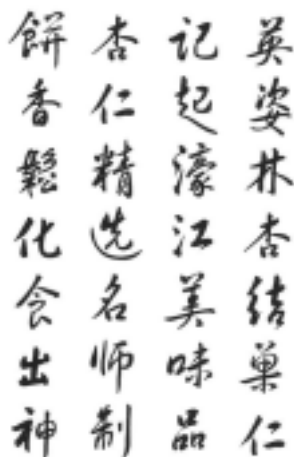 英姿林杏結巢仁
记起濠江美味品
杏仁精选名师制
餅香鬆化食出神